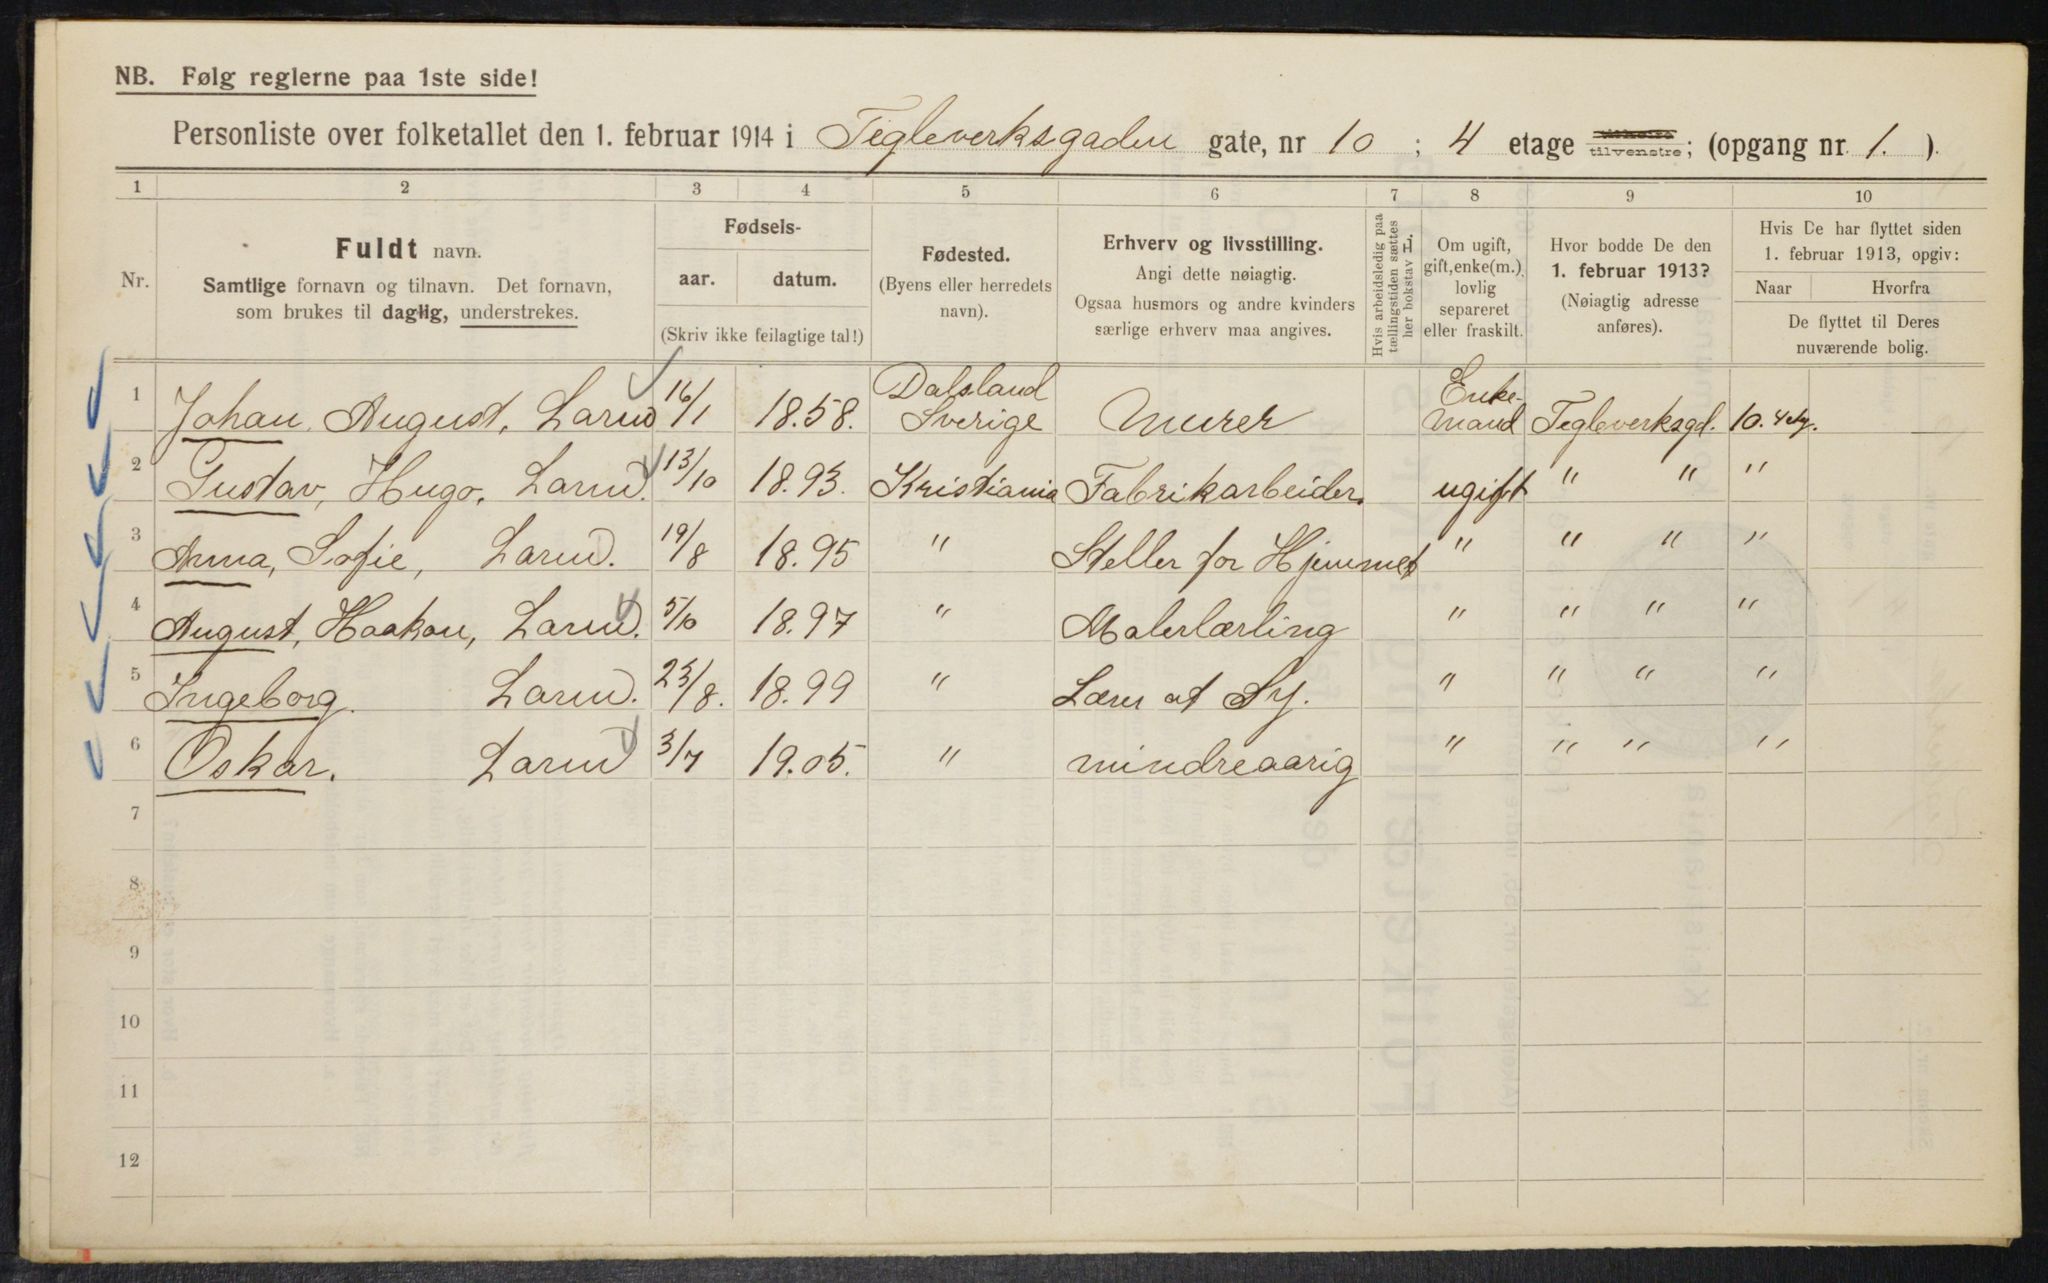 NB. Følg reglerne paa 1ste side!
Personliste over folketallet den 1. februar 1914 i Tegleverksgaden gate, nr 10 ; 4 etage tilhøire tilvenstre; (opgang nr 1. ).
1 2 3 4 5 6 7 8 9 10
Nr.
Fuldt navn.
Samtlige fornavn og tilnavn. Det fornavn,
som brukes til daglig, understrekes.
Fødsels-
aar. datum.
(Skriv ikke feilagtige tal!)
Fødested.
(Byens eller herredets
navn).
Erhverv og livsstilling.
Angi dette nøiagtig.
Ogsaa husmors og andre kvinders
særlige erhverv maa angives.
Hvis arbeidsledig paa
tællingstiden sættes
her bokstav L.
Om ugift,
gift, enke(m.),
lovlig
separeret
eller fraskilt.
Hvor bodde De den
1. februar 1913?
(Nøiagtig adresse
anføres).
Hvis De har flyttet siden
1. februar 1913, opgiv:
Naar Hvorfra
De flyttet til Deres
nuværende bolig.
1 Johan, August, Larud 16/1 18.58. Dalsland Sverige Murer Enke-mand Tegleverksgd. 10. 4 etg.
2 Gustav, Hugo, Larud. 13/10 18.93. Kristiania Fabrikarbeider. ugift " " "
3 Anna, Sofie, Larud. 19/8 18.95 " Steller for Hjemmet " " " "
4 August, Haakon, Larud. 5/10 18.97 " Malerlærling " " " "
5 Ingeborg. Larud. 23/8. 18.99 " Lærer at Sy. " " " "
6 Oskar. Larud 3/7 19.05. " mindreaarig " " " "
7
8
9
10
11
12